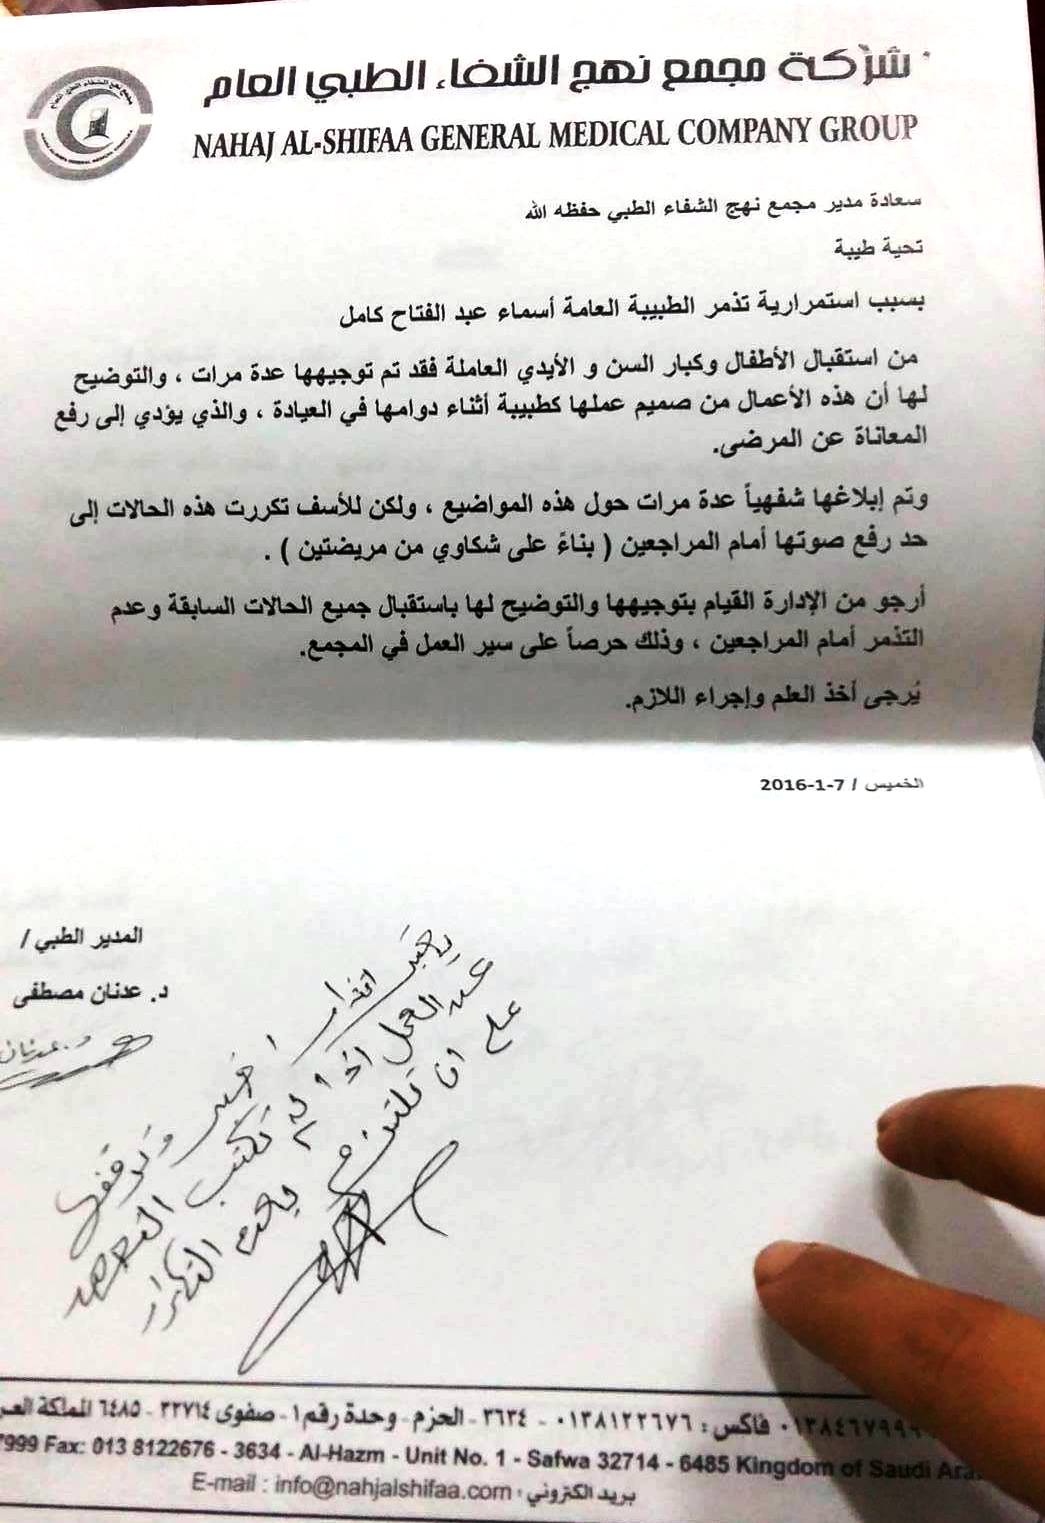 شركة مجمع نهج الشفاء الطبي العام
NAHAJ AL-SHIFAA GENERAL MEDICAL COMPANY GROUP
سعادة مدير مجمع نهج الشفاء الطبي حفظه الله
تحية طيبة
بسبب استمرارية تذمر الطبيبة العامة أسماء عبد الفتاح كامل
من استقبال الأطفال وكبار السن و الأيدي العاملة فقد تم توجيهها عدة مرات ، والتوضيح
لها أن هذه الأعمال من صميم عملها كطبيبة أثناء دوامها في العيادة ، والذي يؤدي إلى رفع
المعاناة عن المرضى.
وتم إبلاغها شفهياً عدة مرات حول هذه المواضيع ، ولكن للأسف تكررت هذه الحالات إلى
حد رفع صوتها أمام المراجعين ( بناءً على شكاوي من مريضتين ) .
أرجو من الإدارة القيام بتوجيهها والتوضيح لها باستقبال جميع الحالات السابقة وعدم
التذمر أمام المراجعين ، وذلك حرصاً على سير العمل في المجمع.
يُرجى أخذ العلم وإجراء اللازم.
الخميس / 7-1-2016
المدير الطبي /
د. عدنان مصطفى
د. عدنان
انذار اخير وتوقف
عن العمل اذا لم تكتب التعهد
على ان تلتزم بعدم التكرار
013846799 فاكس : ٠١٣٨١٢٢٦٧٦ - ٣٦٣٤ - الحزم - وحدة رقم ١ - صفوى ٣٢٧١٤ - ٦٤٨٥ المملكة
7999 Fax: 013 8122676 - 3634 - Al-Hazm - Unit No. 1 - Safwa 32714 - 6485 Kingdom of Saudi
E-mail : info@nahjalshifaa.com : بريد الكتروني